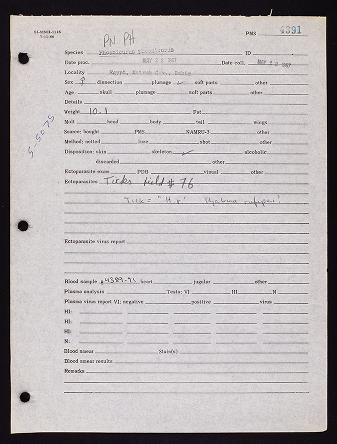 PN PH
PMS 4391
Species Phoenicurus phoenicurus ID
Date proc. MAY 22 1967 Date coll. MAY 22 1967
Locality Egypt,
Sex dissection plumage soft parts other
Age skull plumage soft parts other
Details
Weight 10.1 Fat
Molt head body tail wings
Source: bought PMS NAMRU-3 other
Method: netted lure shot other
Disposition: skin skeleton alcoholic
discarded other
Ectoparasite exam PDB visual other
Ectoparasites Ticks field # 76
Tick = "H. r." Hyalomma rufipes
Ectoparasite virus report
Blood sample #4389-91 heart jugular other
Plasma analysis Tests: VI HI N
Plasma virus report VI: negative positive virus
HI:
HI:
HI:
N:
Blood smear Stain(s)
Blood smear results
Remarks